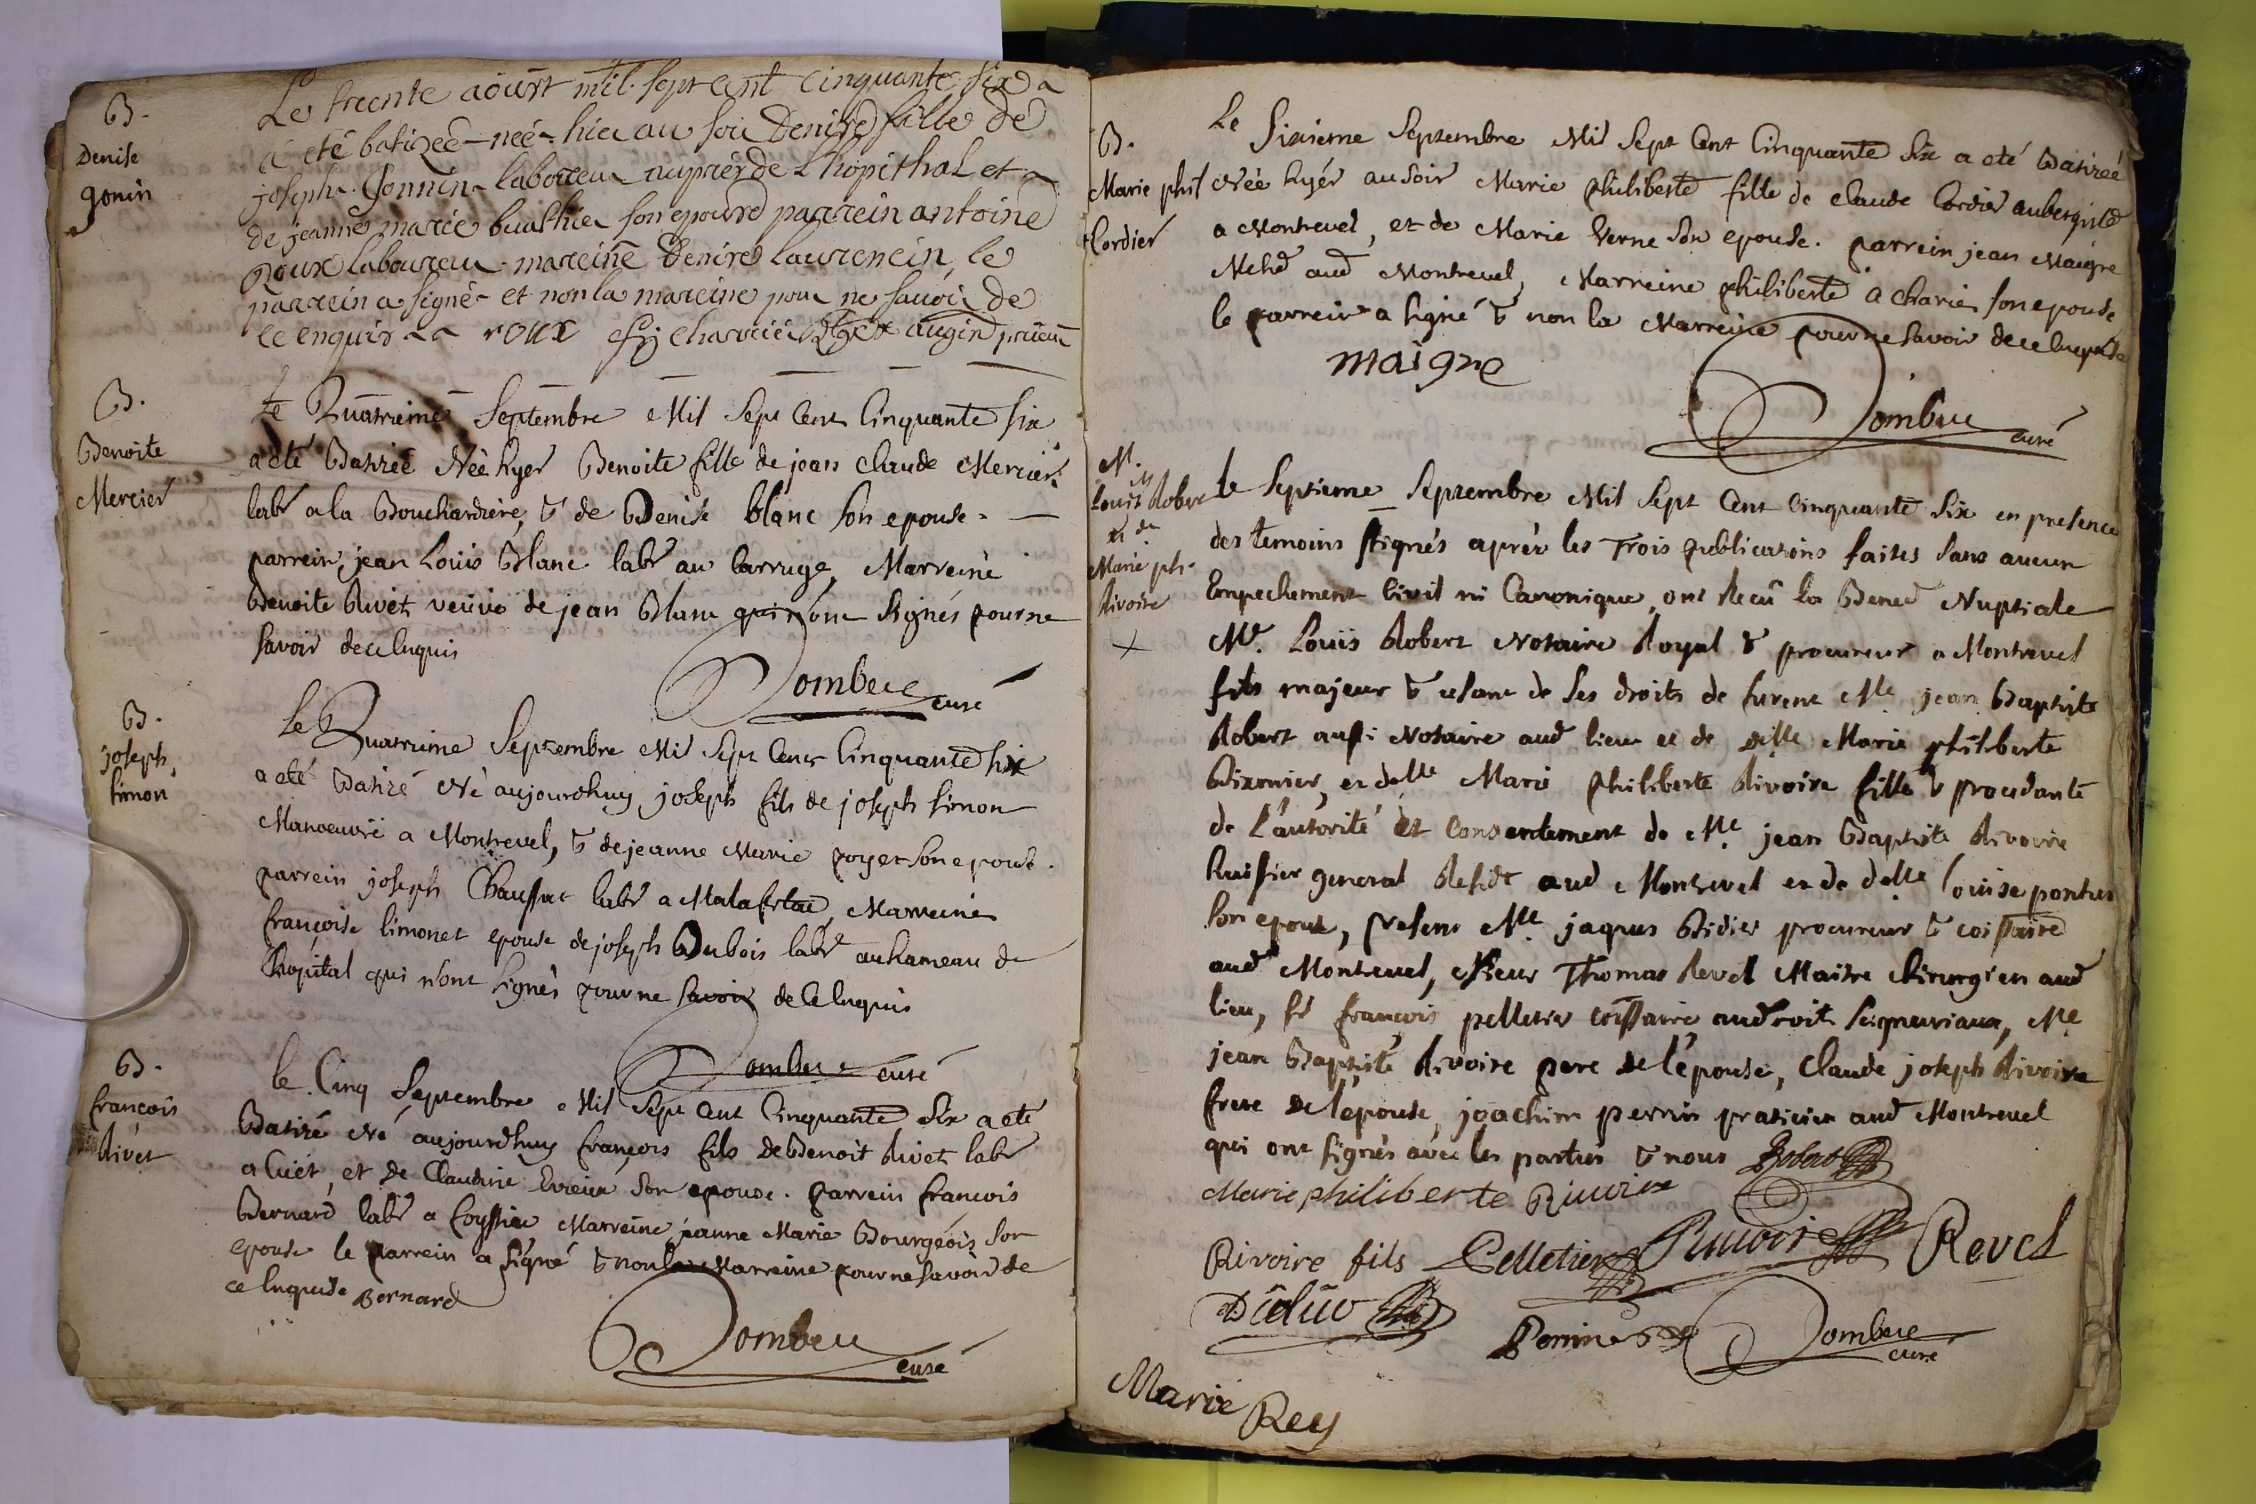 B.
Denise
gonin
Le trente aoust mil sept cent cinquante six a
a eté batizeé neé hier au soir Denise fille de
joseph Gonnin laboureur aupres de l'hopithal et
de jeanne marie buathier son epouse parrein antoine
roux laboureur mareine Denise laurencin, le
parrein a signé et non la mareine pour ne savoir de
ce enquis a roux
B.
Benoite
Mercier
Le Quatrieme Septembre Mil Sept Cent Cinquante six
a eté Batizeé Néé hyer Benoite fille de jean Claude Mercier
labr a la Bouchardiere, & de Denise blanc son epouse.
parrein, jean Louis Blanc labr au Carruge, Marreine
Benoite Rivet veuve de jean Blanc qui n'ont signés pour ne
savoir de ce enquis
Dombeu
curé
B.
joseph
simon
Le Quatrieme Septembre Mil Sept Cent Cinquante Six
a eté Batizé Né aujourdhuy joseph fils de joseph simon
Manoeuvre a Montrevel, & de jeanne Marie poyet son epouse.
parrein joseph Chaussat labr a Malafretaz, Marreine
françoise limonet epouse de joseph Dubois labr au hameau de
l'hopital qui n'ont signés pour ne savoir de ce enquis
Dombeu curé
B.
françois
Rivet
le Cinq Septembre Mil Sept Cent Cinquante Six a eté
Batizé Né aujourdhuy françois fils de Benoit Rivet labr
a Cuet, et de Claudine son epouse. parrein françois
Bernard labr a foyssiat Marreine jeanne Marie Bourgeois son
epouse le parrein a signé & non la Marreine pour ne savoir de
ce enquise Bernard
Dombeu
curé
B.
Marie phil
Cordier
Le Sixieme Septembre Mil Sept Cent Cinquante Six a eté Batizeé
Néé hyér au soir Marie philiberte fille de Claude Cordier aubergiste
a Montrevel, et de Marie Verne son epouse. parrein jean Maigre
Mchd aud Montrevel, Marreine philiberte Acharie son epouse
le parrein a signé & non la Marreine pour ne savoir de ce enquise
maigre
Dombeu
curé
M.
Louis Robert
et de
Marie ph.
Rivoire
le Septieme Septembre Mil Sept Cent Cinquante Six en presence
des temoins ssignés aprés les Trois publications faites sans aucun
Empechement Civil ni Canonique, ont Recû la Bened Nuptiale
Me. Louis Robert Notaire Royal & procureur a Montrevel
fils majeur & usant de ses droits de furent Me jean Baptiste
Robert aussi Notaire aud lieu et de delle Marie philiberte
et delle Marie philiberte Rivoire fille & procedante
de l'autorité et Consentement de Me. jean Baptiste Rivoire
huissier general Residt aud Montrevel et de delle Louise
son epouse, presens Me. jaques Didier procureur & coissaire
aud Montrevel, Sieur Thomas Revel Maitre Chirurgien aud
lieu, sr françois pelletier coissaire aud roits seigneuriaux, Me
jean Baptiste Rivoire pere de l'epouse, Claude joseph Rivoire
frere de l'epouse, joachim perrin praticien aud Montrevel
qui ont signés avec les parties & nous Robert
Marie philiberte Rivoire
Rivoire fils Pelletier Rivoire Revel
Perrin Dombeu
curé
Marie Rey